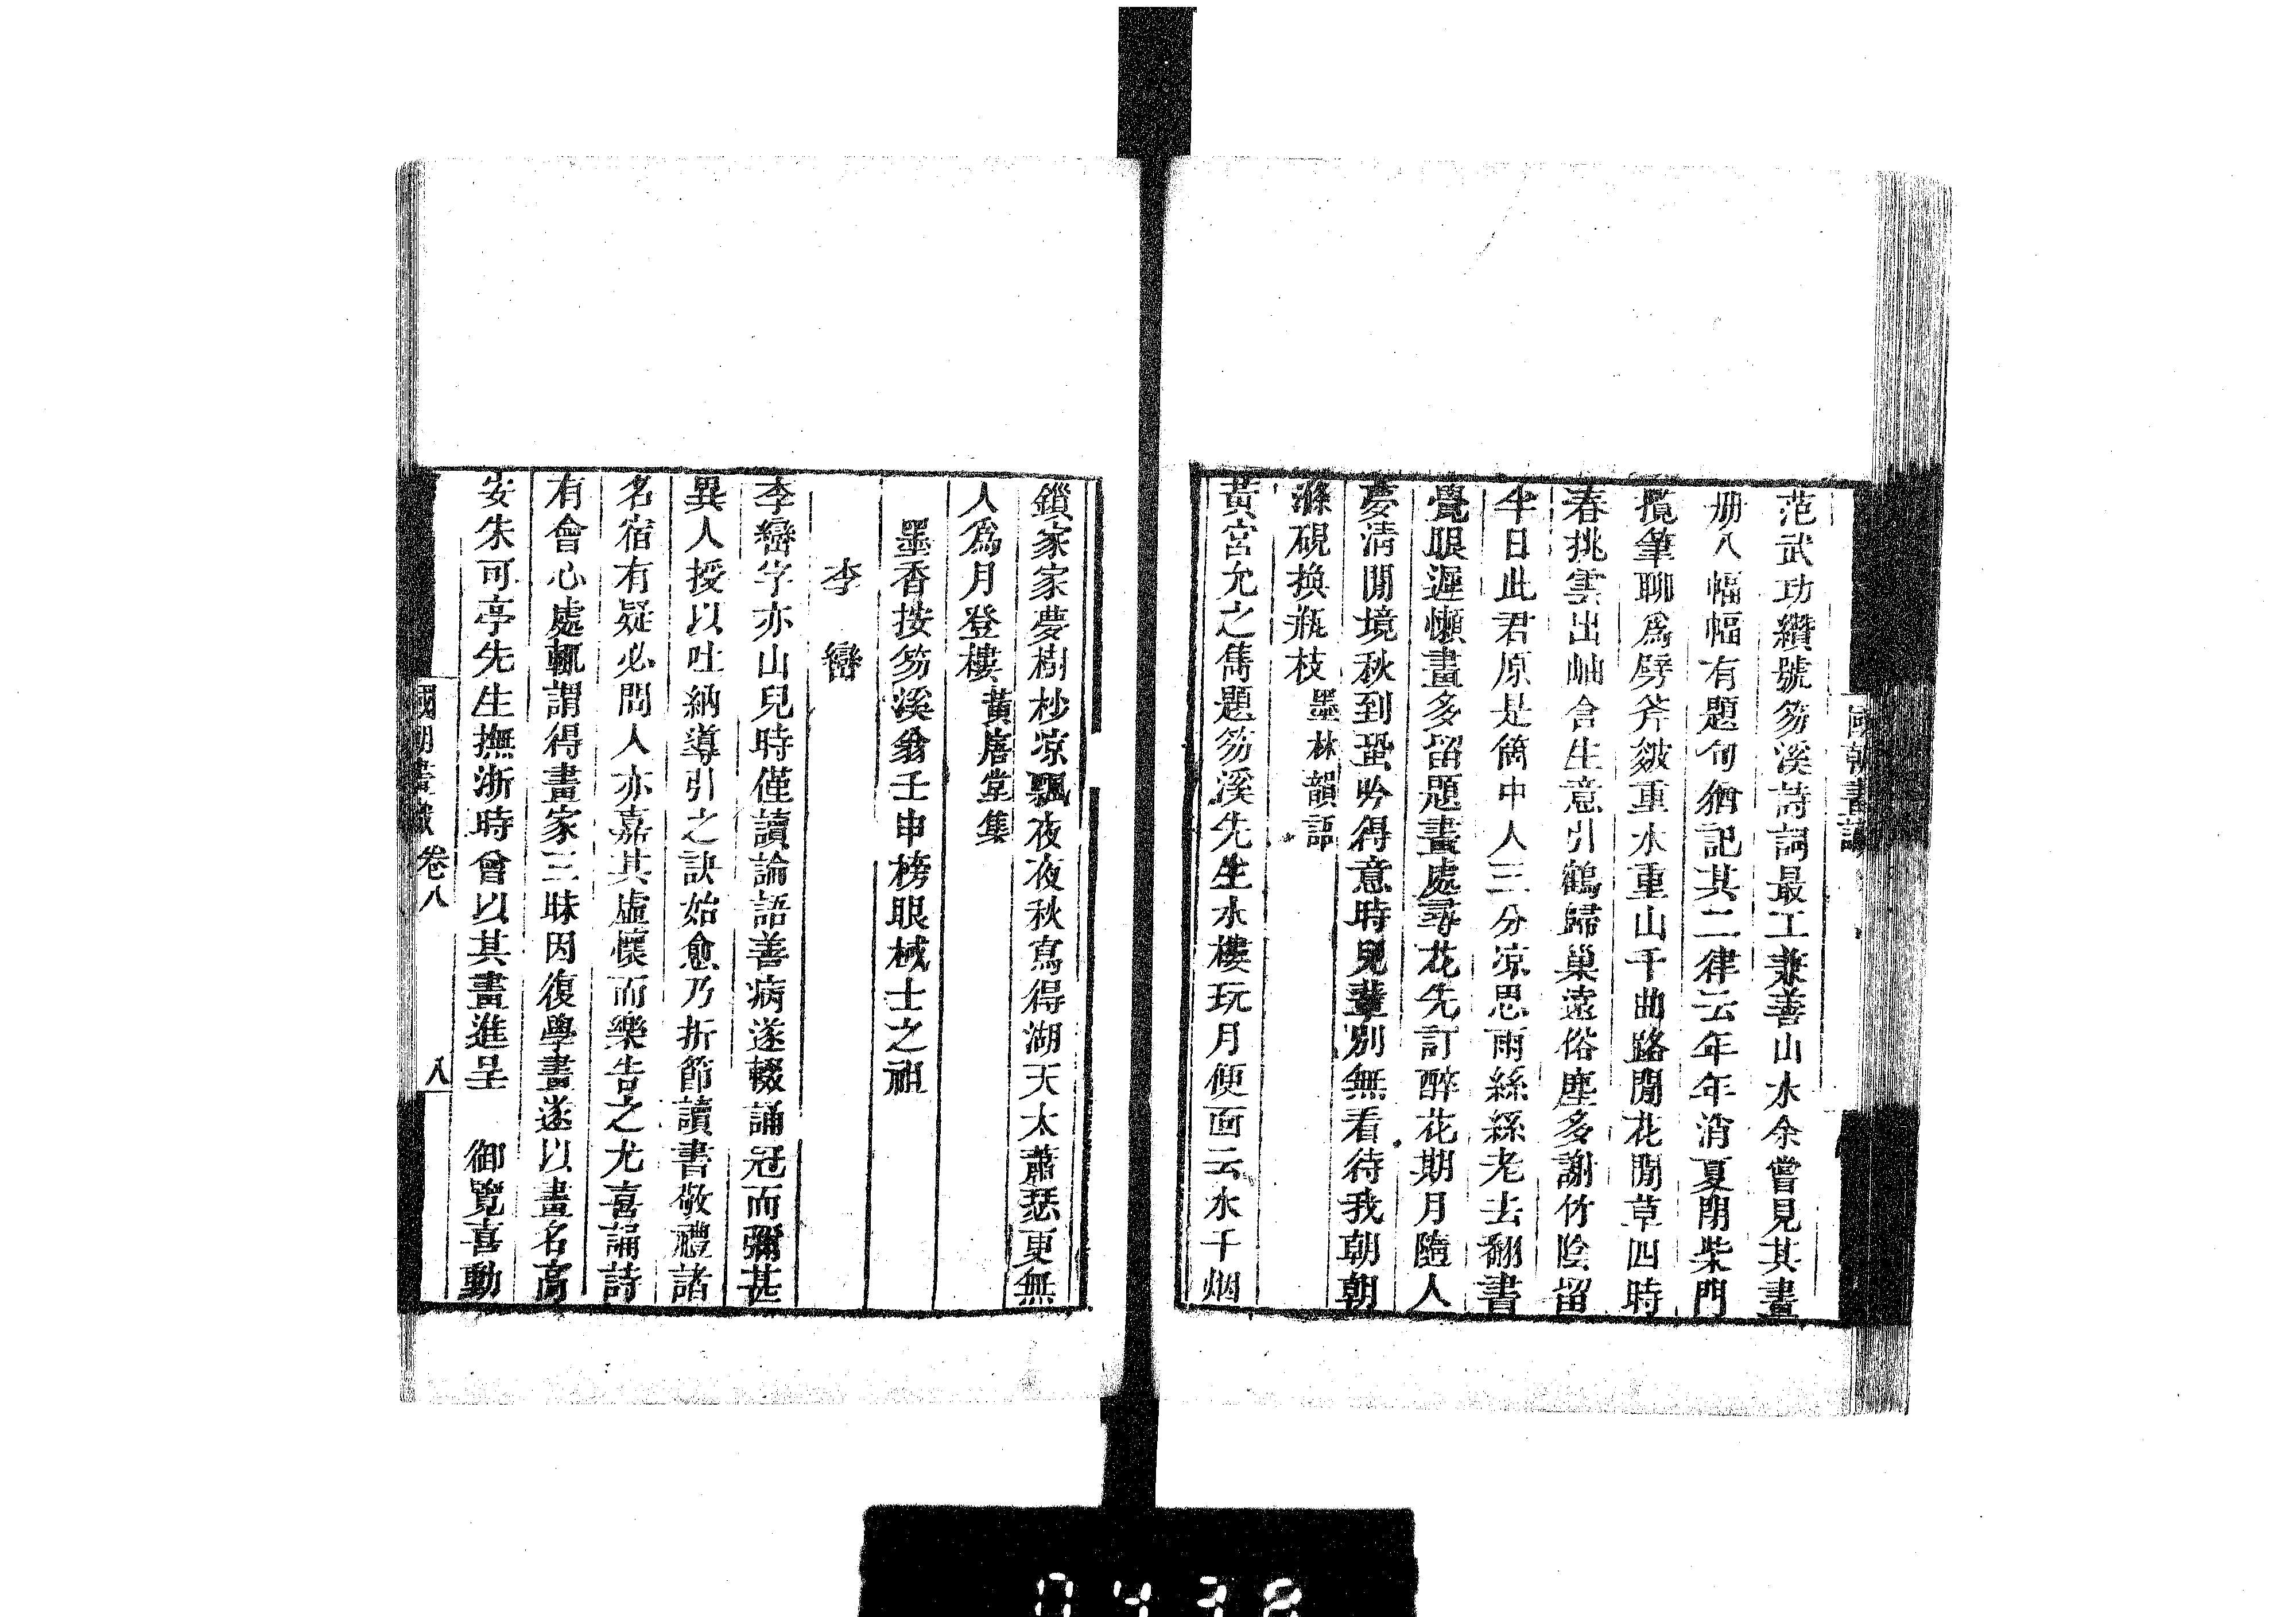 國朝畫識
范武功纘號笏溪詩詞最工兼善山水余曾見其畫
册八幅幅有題句猶記其二律云年年消夏閉柴門
攬筆聊爲劈斧皴重水重山千曲路閒花閒草四時
春挑雲出岫含生意引鶴歸巢遠俗塵多謝竹陰留
半日此君原是箇中人三分凉思雨絲絲老去翻書
覺眼遲懶畫多留題畫處尋花先訂醉花期月隨人
夢清閒境秋到蛩吟得意時兒輩别無看待我朝朝
滌硯換瓶枝墨林韻語
黃宮允之雋題笏溪先生水樓玩月便面云水千烟
鎖家家夢樹杪凉飄夜夜秋寫得湖天太蕭瑟更無
人爲月登樓黃唐堂集
墨香按笏溪翁壬申榜眼棫士之祖
李巒
李巒字亦山兒時僅讀論語善病遂輟誦冠而彌甚
異人授以吐納導引之訣始愈乃折節讀書敬禮諸
名宿有疑必問人亦嘉其虛懷而樂告之尤喜誦詩
有會心處輒謂得畫家三昧因復學畫遂以畫名高
安朱可亭先生撫浙時曾以其畫進呈 御覽喜動
國朝畫識 卷八 八
0438